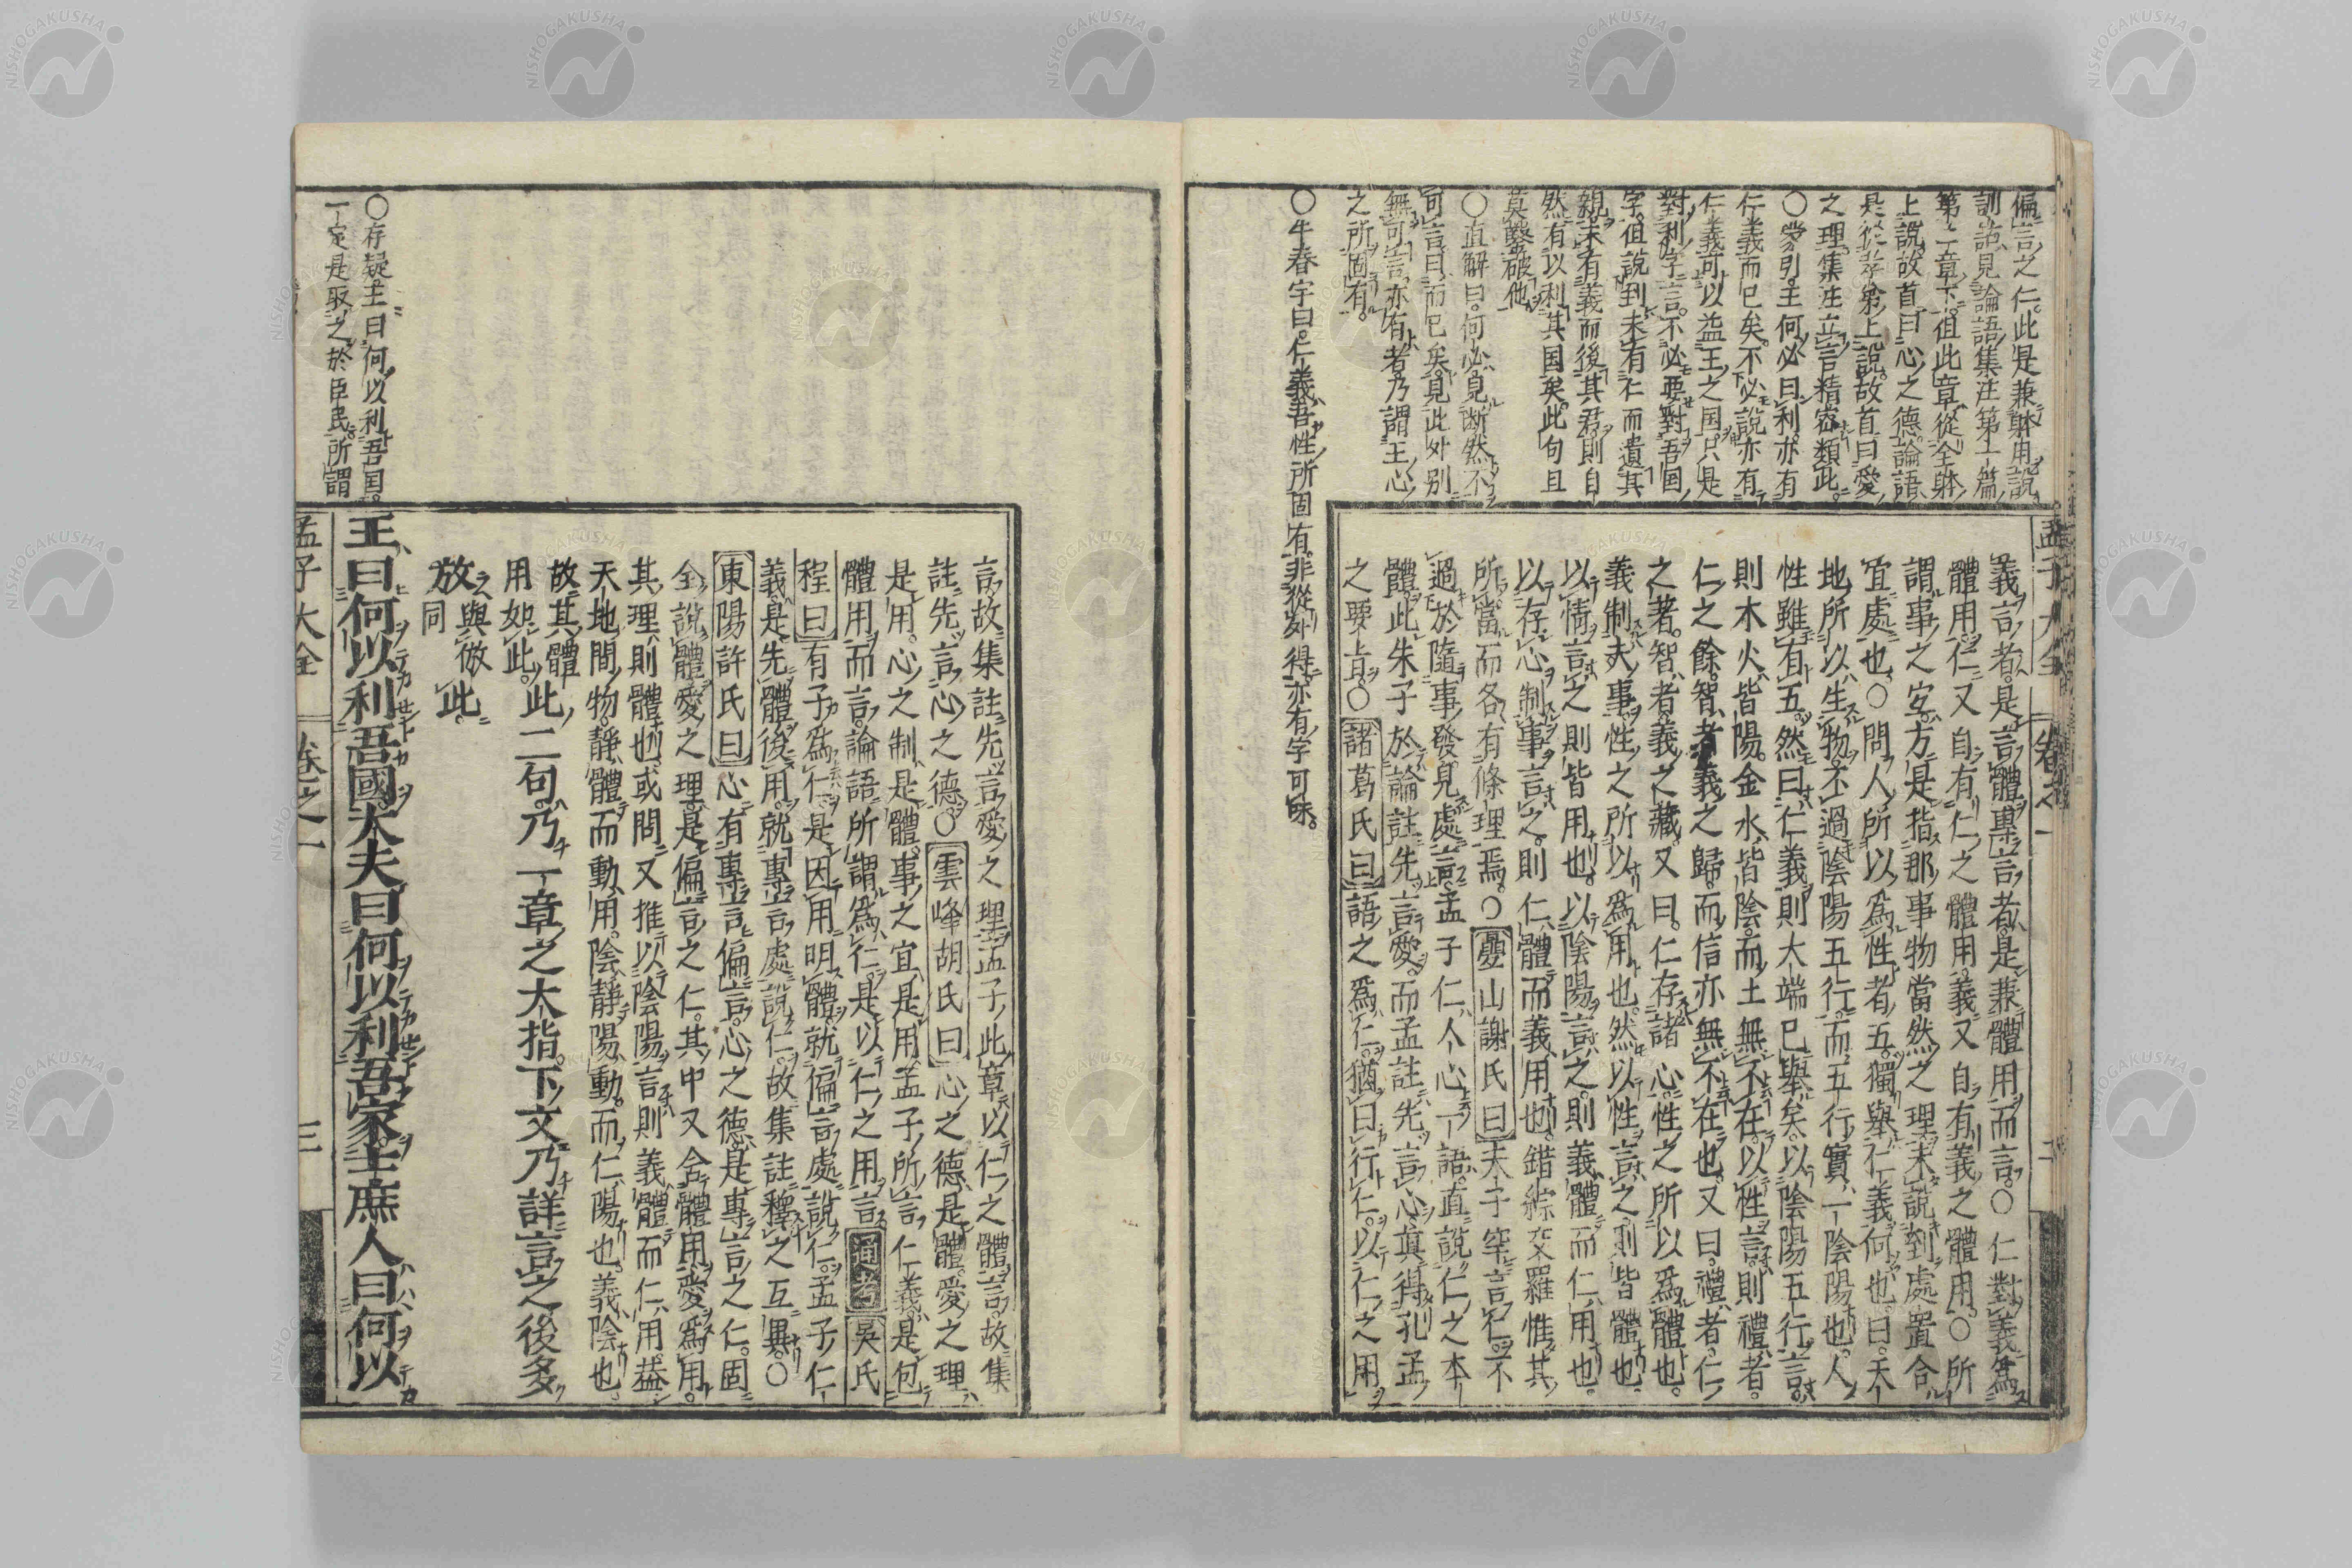 偏言之仁。此是兼躰用說
訓詁見論語集注第一篇
第二章下。但此章從全躰
上說。故首曰心之德論語
是從孝弟上說。故首曰愛
之理集注立言精密類此。
○蒙引。王何必曰利。亦有
仁義而已矣。不必說亦有
仁義可以益王之国只是
對利字言。不必要對吾国
字。但說到未有仁而遺其
親未有義而後其君則自
然有以利其国矣。此句且
莫鑿破他
○直解曰。何必見断然不
可言曰而已矣。見此外別
無可言。亦有者。乃謂王心
之所固有。
○牛春宇曰。仁義吾性所固有。非從外得。亦有字可味。
孟子大全 卷之一 二
義言者是言體專言者。是兼體用而言。○仁對義爲
體用。仁又自有仁之體用。義又自有義之體用。○所
謂事之宜。方是指那事物當然之理未說到處置合
宜處也○問人所以爲性者五。獨舉仁義何也。曰。天
地所以生物。不過陰陽五行。而五行實一陰陽也。人
性雖有五。然曰仁義則大端已舉矣。以陰陽五行言。
則木火皆陽。金水皆陰。而土無不在。以性言。則禮者。
仁之餘。智者義之歸。而信亦無不在也。又曰。禮者。仁
之著。智者。義之藏。又曰。仁存諸心。性之所以爲體也。
義制夫事。性之所以爲用也。然以性言之。則皆體也。
以情言之。則皆用也。以陰陽言之。則義體而仁用也。
以存心制事言之。則仁體而義用也。錯綜交羅惟其
所當而各有條理焉。○疊山謝氏曰夫子罕言仁。不
過於隨事發見處言。孟子仁人心一語。直說仁之本
體。此朱子於論註先言愛。而孟註先言心。眞得孔孟
之要旨○諸葛氏曰語之爲仁。猶曰行仁。以仁之用
言。故集註先言愛之理孟子此章以仁之體言。故集
註先言心之德。○雲峰胡氏曰心之德是體。愛之理
是用。心之制是體。事之宜是用。孟子所言仁義是包
體用而言。論語所謂爲仁。是以仁之用言通考吳氏
程曰有子爲仁。是因用明體。就偏言處說仁。孟子仁
義是先體後用。就專言處說仁。故集註釋之互異。○
東陽許氏曰心有專言偏言。心之德是專言之仁。固
全說體愛之理是偏言之仁。其中又含體用。愛爲用
其理則體也。或問又推以陰陽言則義體而仁用。益
天地間物靜體而動用。陰靜陽動。而仁陽也。義陰也
故其體
用如此。此二句。乃一章之大指。下文乃詳言之後多
放此。
之與倣
放同
○存疑。王曰何以利吾国。
一定是取之於臣民所謂
王曰何以利吾國大夫曰何以利吾家士庶人曰何以
孟子大全 卷之一 三